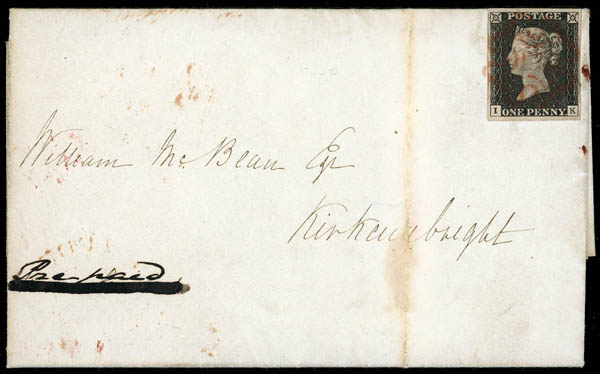 POSTAGE
I ONE PENNY K
William McBean Esqr
Kirkcudbright
Pre paid